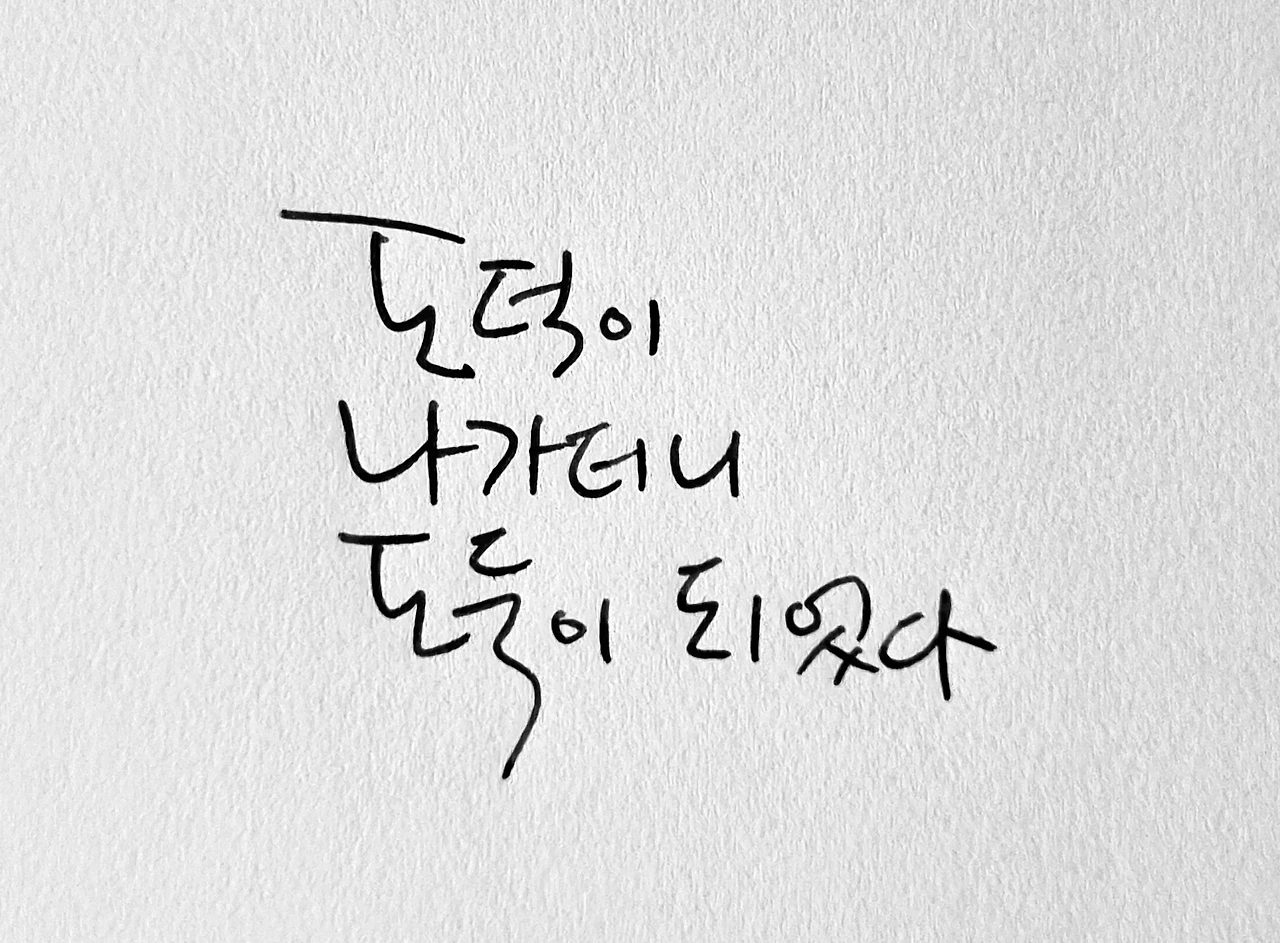 도덕이
나가더니
도둑이 되었다